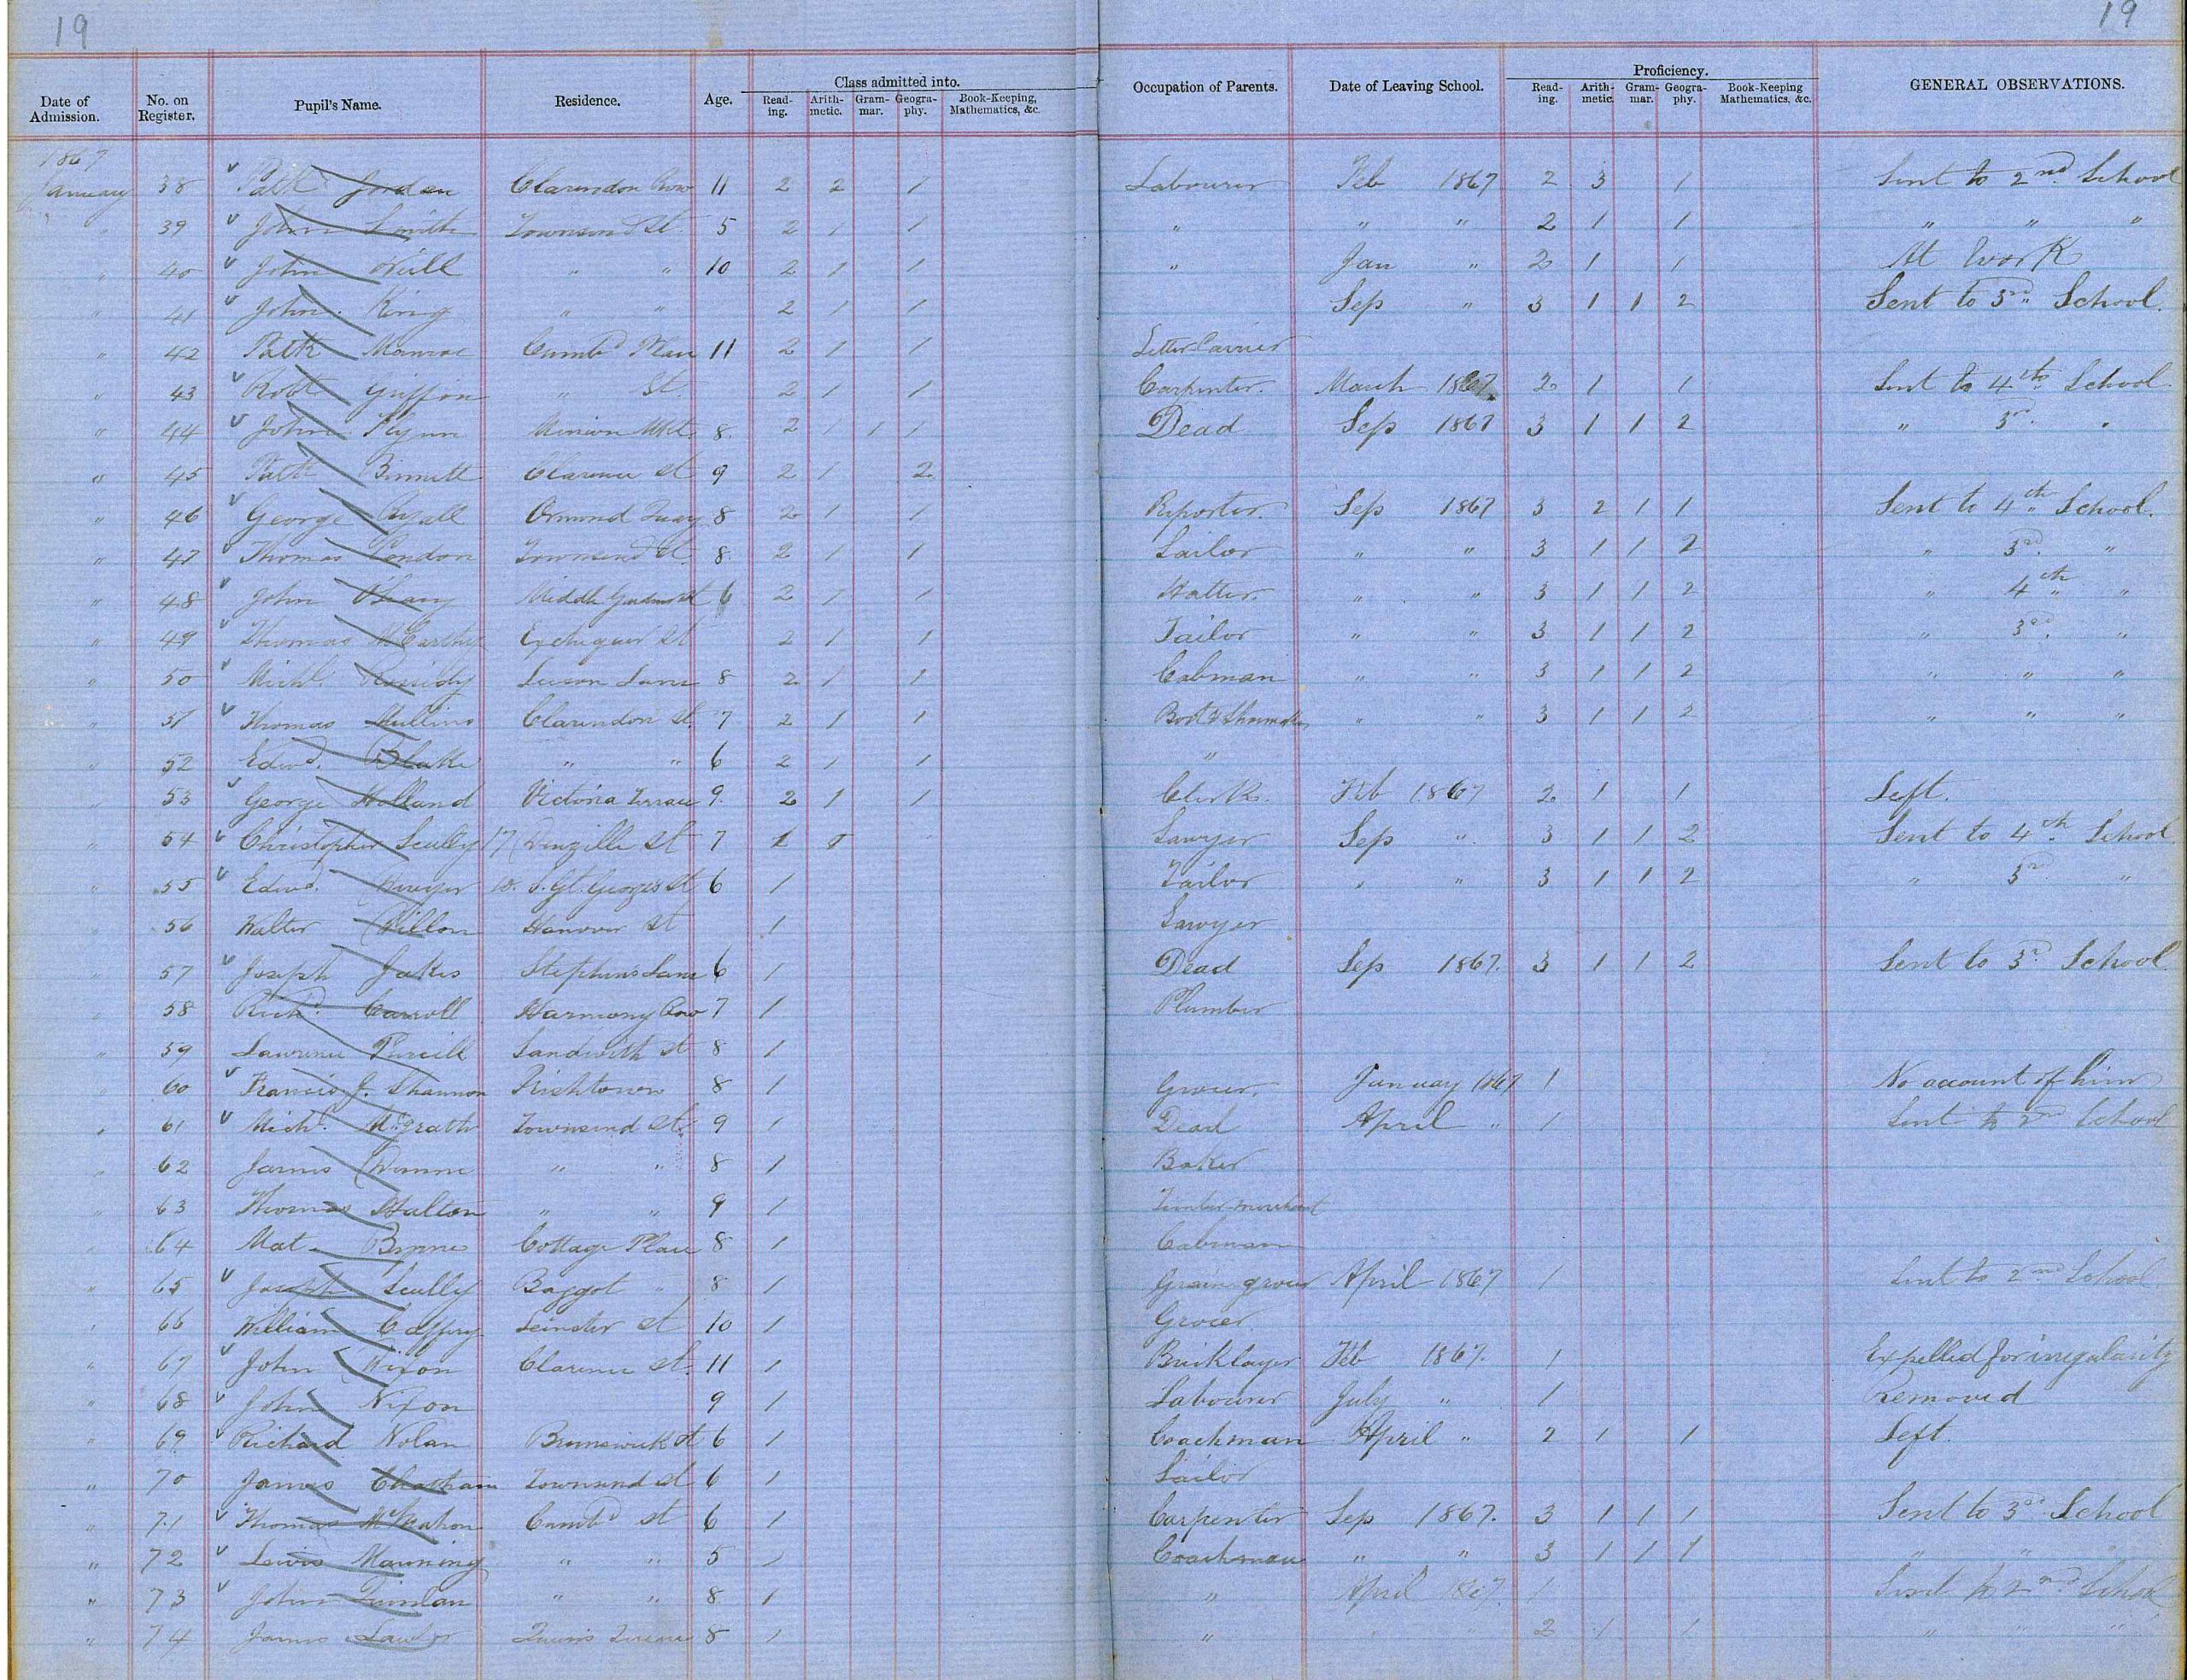 19 19
Class admitted into. Proficiency.
Date of Admission. No. on Register. Pupil's Name. Residence. Age. Read-ing. Arith-metic. Gram-mar. Geogra-phy. Book-Keeping, Mathematics, &c. Occupation of Parents. Date of Leaving School. Read-ing. Arith-metic. Gram-mar. Geogra-phy. Book-Keeping Mathematics, &c. GENERAL OBSERVATIONS.
1867
January 38 Patk Jordan Clarendon Row 11 2 2 1 Labourer Feb 1867 2 3 1 Sent to 2nd School
" 39 John Smith Townsend St. 5 2 1 1 " " " 2 1 1 " " "
" 40 John Neill " " 10 2 1 1 " Jan " 2 1 1 At Work
" 41 John King " " 2 1 1 Sep " 3 1 1 2 Sent to 3rd School.
" 42 Patk Monroe Cumbd Place 11 2 1 1 Letter Carrier
" 43 Robt Griffin " St. 2 1 1 Carpenter. March 1867 2 1 1 Sent to 4th School
" 44 John Flynn Mkt. 8. 2 1 1 1 Dead Sep 1867 3 1 1 2 " 3rd "
" 45 Patk Bennett Clarence St 9 2 1 2
" 46 George Ryall Ormond Quay 8 2 1 1 Reporter. Sep 1867 3 2 1 1 Sent to 4th School.
" 47 Thomas Condon Townsend St. 8. 2 1 1 Sailor " " 3 1 1 2 " 3rd "
" 48 John O'Leary Middle Gardiner St 6 2 1 1 Hatter. " " 3 1 1 2 " 4th "
" 49 Thomas McCarthy Exchequer St 2 1 1 Tailor " " 3 1 1 2 " 3rd "
" 50 Michl. Cassidy Leeson Lane 8 2 1 1 Cabman " " 3 1 1 2 " " "
" 51 Thomas Mullins Clarendon St. 7 2 1 1 Boot & Shoemaker " " 3 1 1 2 " " "
" 52 Edwd. Blake " " 6 2 1 1 "
" 53 George Holland Victoria Terrace 9. 2 1 1 Clerk. Feb 1867 2 1 1 Left.
" 54 Christopher Scully 17 Denzille St 7 1 0 Sawyer Sep " 3 1 1 2 Sent to 4th School
" 55 Edwd. Dwyer 10. S. Gt. Georges St 6 1 Tailor " " 3 1 1 2 " 3rd "
" 56 Walter Dillon Hanover St 1 Sawyer
" 57 Joseph Jakes Stephens Lane 6 1 Dead Sep 1867. 3 1 1 2 Sent to 3rd School.
" 58 Richd. Carroll Harmony Row 7 1 Plumber
" 59 Lawrence Purcell Sandwith St 8 1
" 60 Francis J. Shannon Irishtown 8 1 Grocer. January 1867 1 No account of him
" 61 Michl. McGrath Townsend St. 9 1 Dead April " 1 Sent to 2nd School
" 62 James Dunne " " 8 1 Baker
" 63 Thomas Halton " " 9 1 Timber merchant
" 64 Mat. Byrne Cottage Place 8 1 Cabman
" 65 Joseph Scully Baggot " 8 1 Grain grocer April 1867 1 Sent to 2nd School.
" 66 William Caffery Leinster St 10 1 Grocer.
" 67 John Nixon Clarence St. 11 1 Bricklayer Feb 1867. 1 Expelled for irregularity
" 68 John Nixon 9 1 Labourer July " 1 Removed
" 69 Richard Nolan Brunswick St 6 1 Coachman April " 2 1 1 Left.
" 70 James Cheatham Townsend St 6 1 Sailor
" 71 Thomas McMahon Cumbd St 6 1 Carpenter Sep 1867. 3 1 1 1 Sent to 3rd School
" 72 Lewis Manning " " 5 1 Coachman " " 3 1 1 1 " " "
" 73 John Quinlan " " 8 1 " April 1867. 1 Sent to 2nd School
" 74 James Lawlor 8 1 " " " 2 1 1 " " "